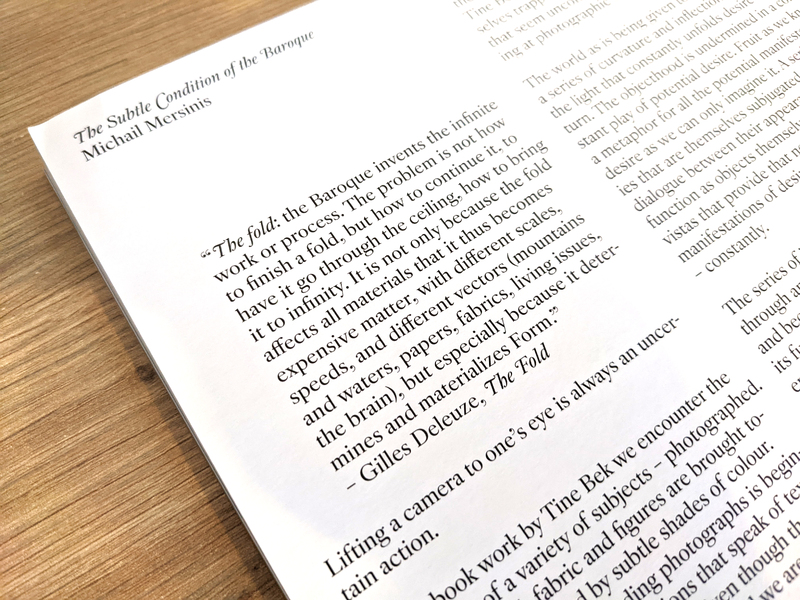 The Subtle Condition of the Baroque
Michail Mersinis
“The fold: the Baroque invents the infinite
work or process. The problem is not how
to finish a fold, but how to continue it, to
have it go through the ceiling, how to bring
it to infinity. It is not only because the fold
affects all materials that it thus becomes
expensive matter, with different scales,
speeds, and different vectors (mountains
and waters, papers, fabrics, living issues,
the brain), but especially because it deter-
mines and materializes Form.”
– Gilles Deleuze, The Fold
Lifting a camera to one’s eye is always an uncer-
tain action.
book work by Tine Bek we encounter the
of a variety of subjects – photographed.
fabric and figures are brought to-
d by subtle shades of colour.
ding photographs is begin
ions that speak of te
ven though th
we are
Tine B
selves trapp
that seem uncon
ing at photographic
The world as is being given t
a series of curvature and inflection
the light that constantly unfolds desire
turn. The objecthood is undermined in a co
stant play of potential desire. Fruit as we kn
a metaphor for all the potential manifest
desire as we can only imagine it. A se
ies that are themselves subjugated
dialogue between their appear
function as objects themse
vistas that provide that n
manifestations of desi
– constantly.
The series of
through an
and be
its fu